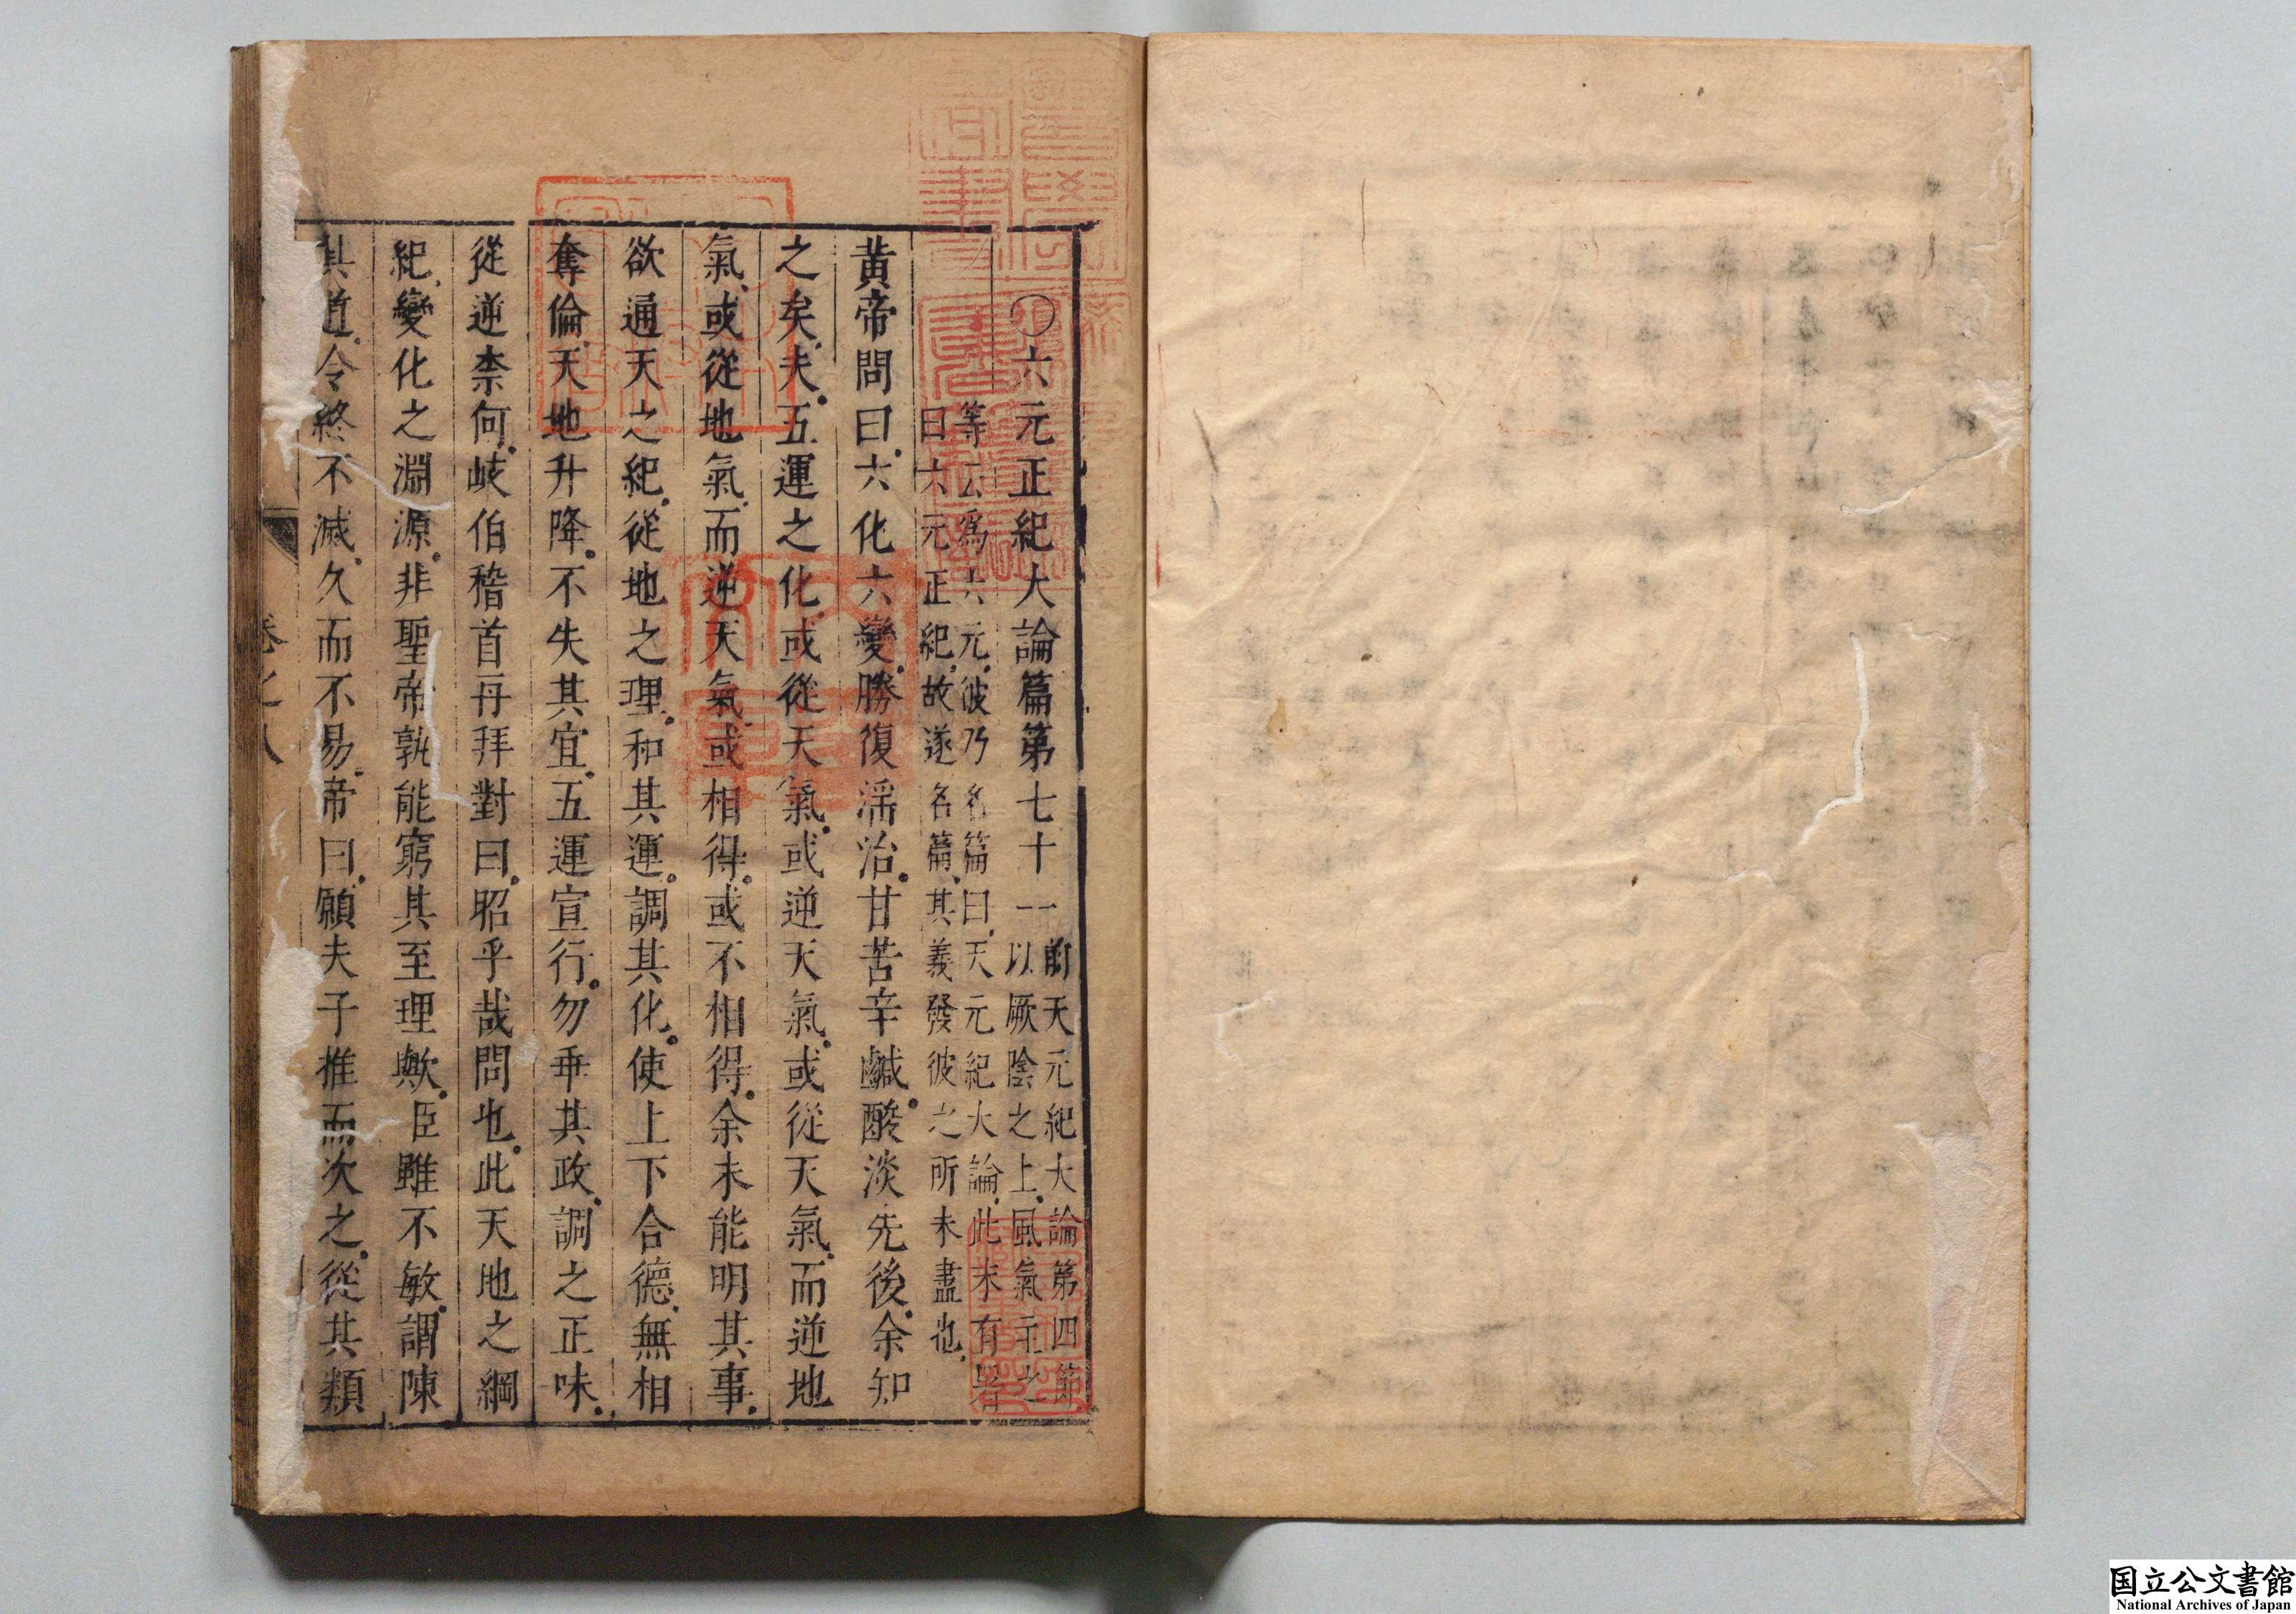 ○六元正紀大論篇第七十一 前天元紀大論第四節以厥陰之上風氣主之
等云爲六元彼乃名篇曰天元紀大論此末有皆曰六元正紀故遂名篇其義發彼之所未盡也
黃帝問曰六化六變勝復淫治甘苦辛鹹酸淡先後余知
之矣夫五運之化或從天氣或逆天氣或從天氣而逆地
氣或從地氣而逆天氣或相得或不相得余未能明其事
欲通天之紀從地之理和其運調其化使上下合德無相
奪倫天地升降不失其宜五運宣行勿乖其政調之正味
從逆柰何岐伯稽首再拜對曰昭乎哉問也此天地之綱
紀變化之淵源非聖帝孰能窮其至理歟臣雖不敏謂陳
其道令終不滅久而不易帝曰願夫子推而次之從其類
卷之八
国立公文書館
National Archives of Japan